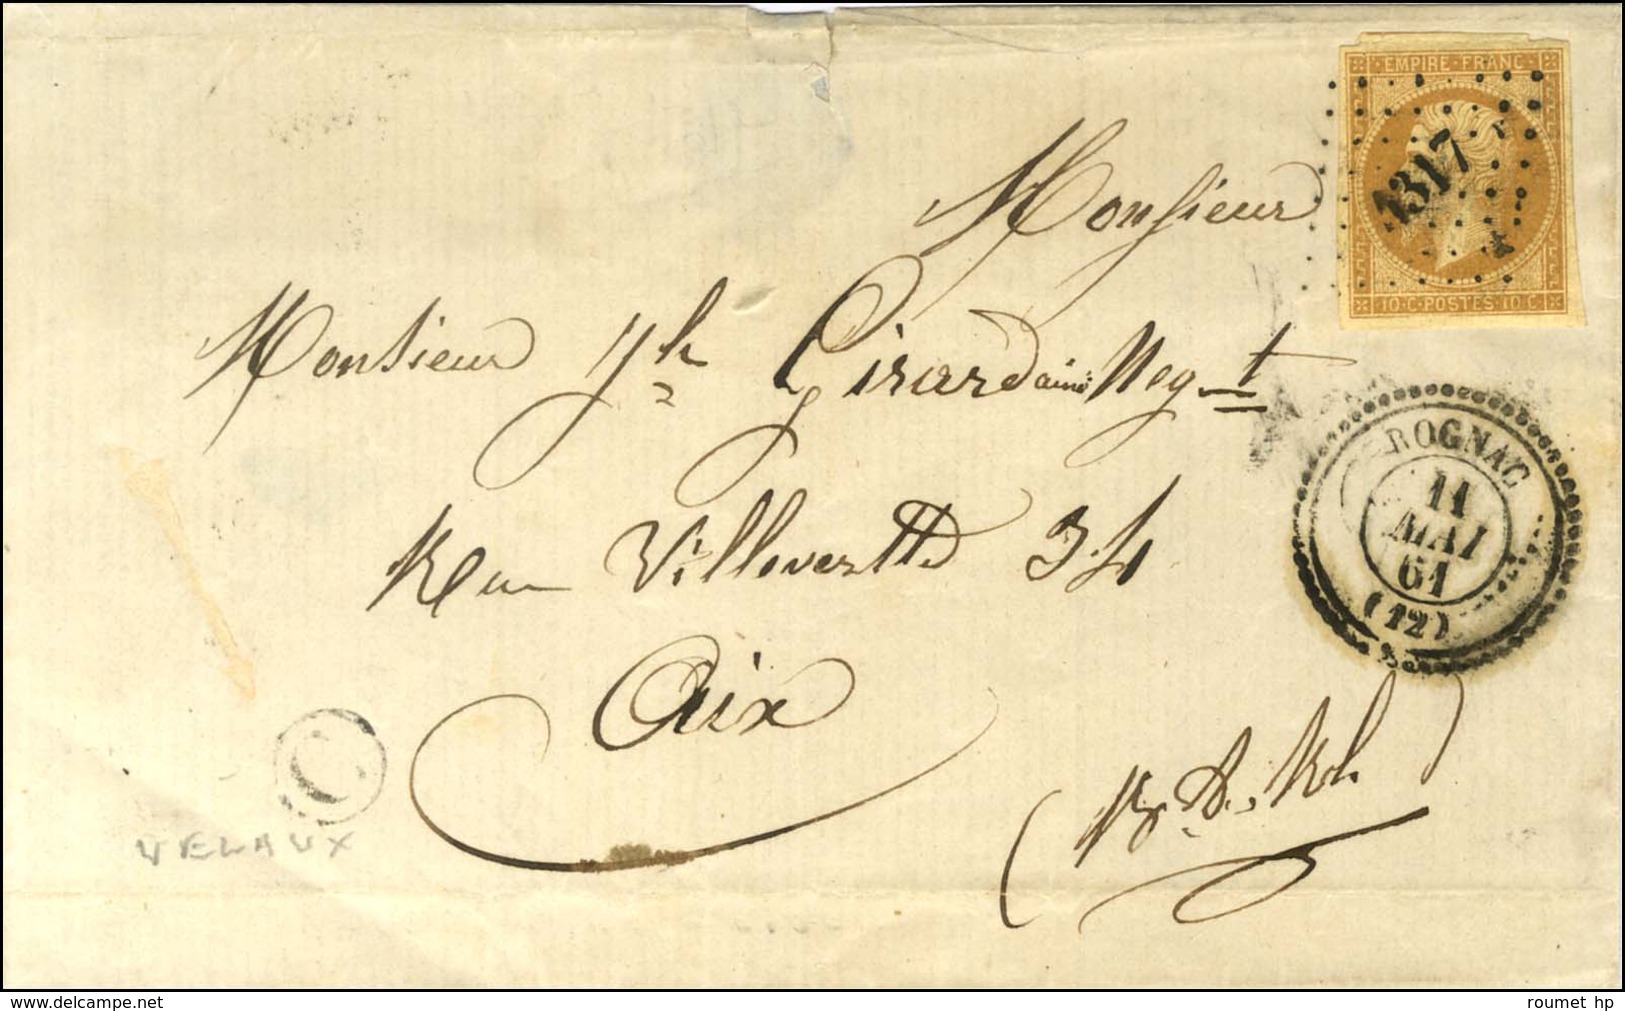 EMPIRE·FRANC·
4317
10·C·POSTES·10·C·
Monsieur
Monsieur Jh Girard ainé Negt
Rue Villeverte 34
Aix
ROGNAC
11
MAI
61
(12)
C
VELAUX
www.delcampe.net
roumet hp